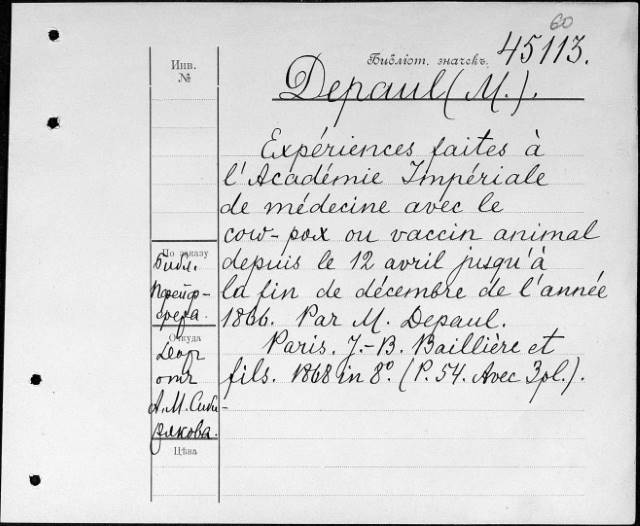 60
Инв.
№
Библіот. значекъ.
45113.
Depaul (M.).
Expériences faites à
l'Académie Impériale
de médecine avec le
cow-pox ou vaccin animal
depuis le 12 avril jusqu'à
la fin de décembre de l'année
1866. Par M. Depaul.
Paris. J.-B. Baillière et
fils. 1868 in 8º. (P. 54. Avec 3 pl.).
По заказу
Библ.
Откуда
отъ
А. М. Сиби-
рякова.
Цѣна